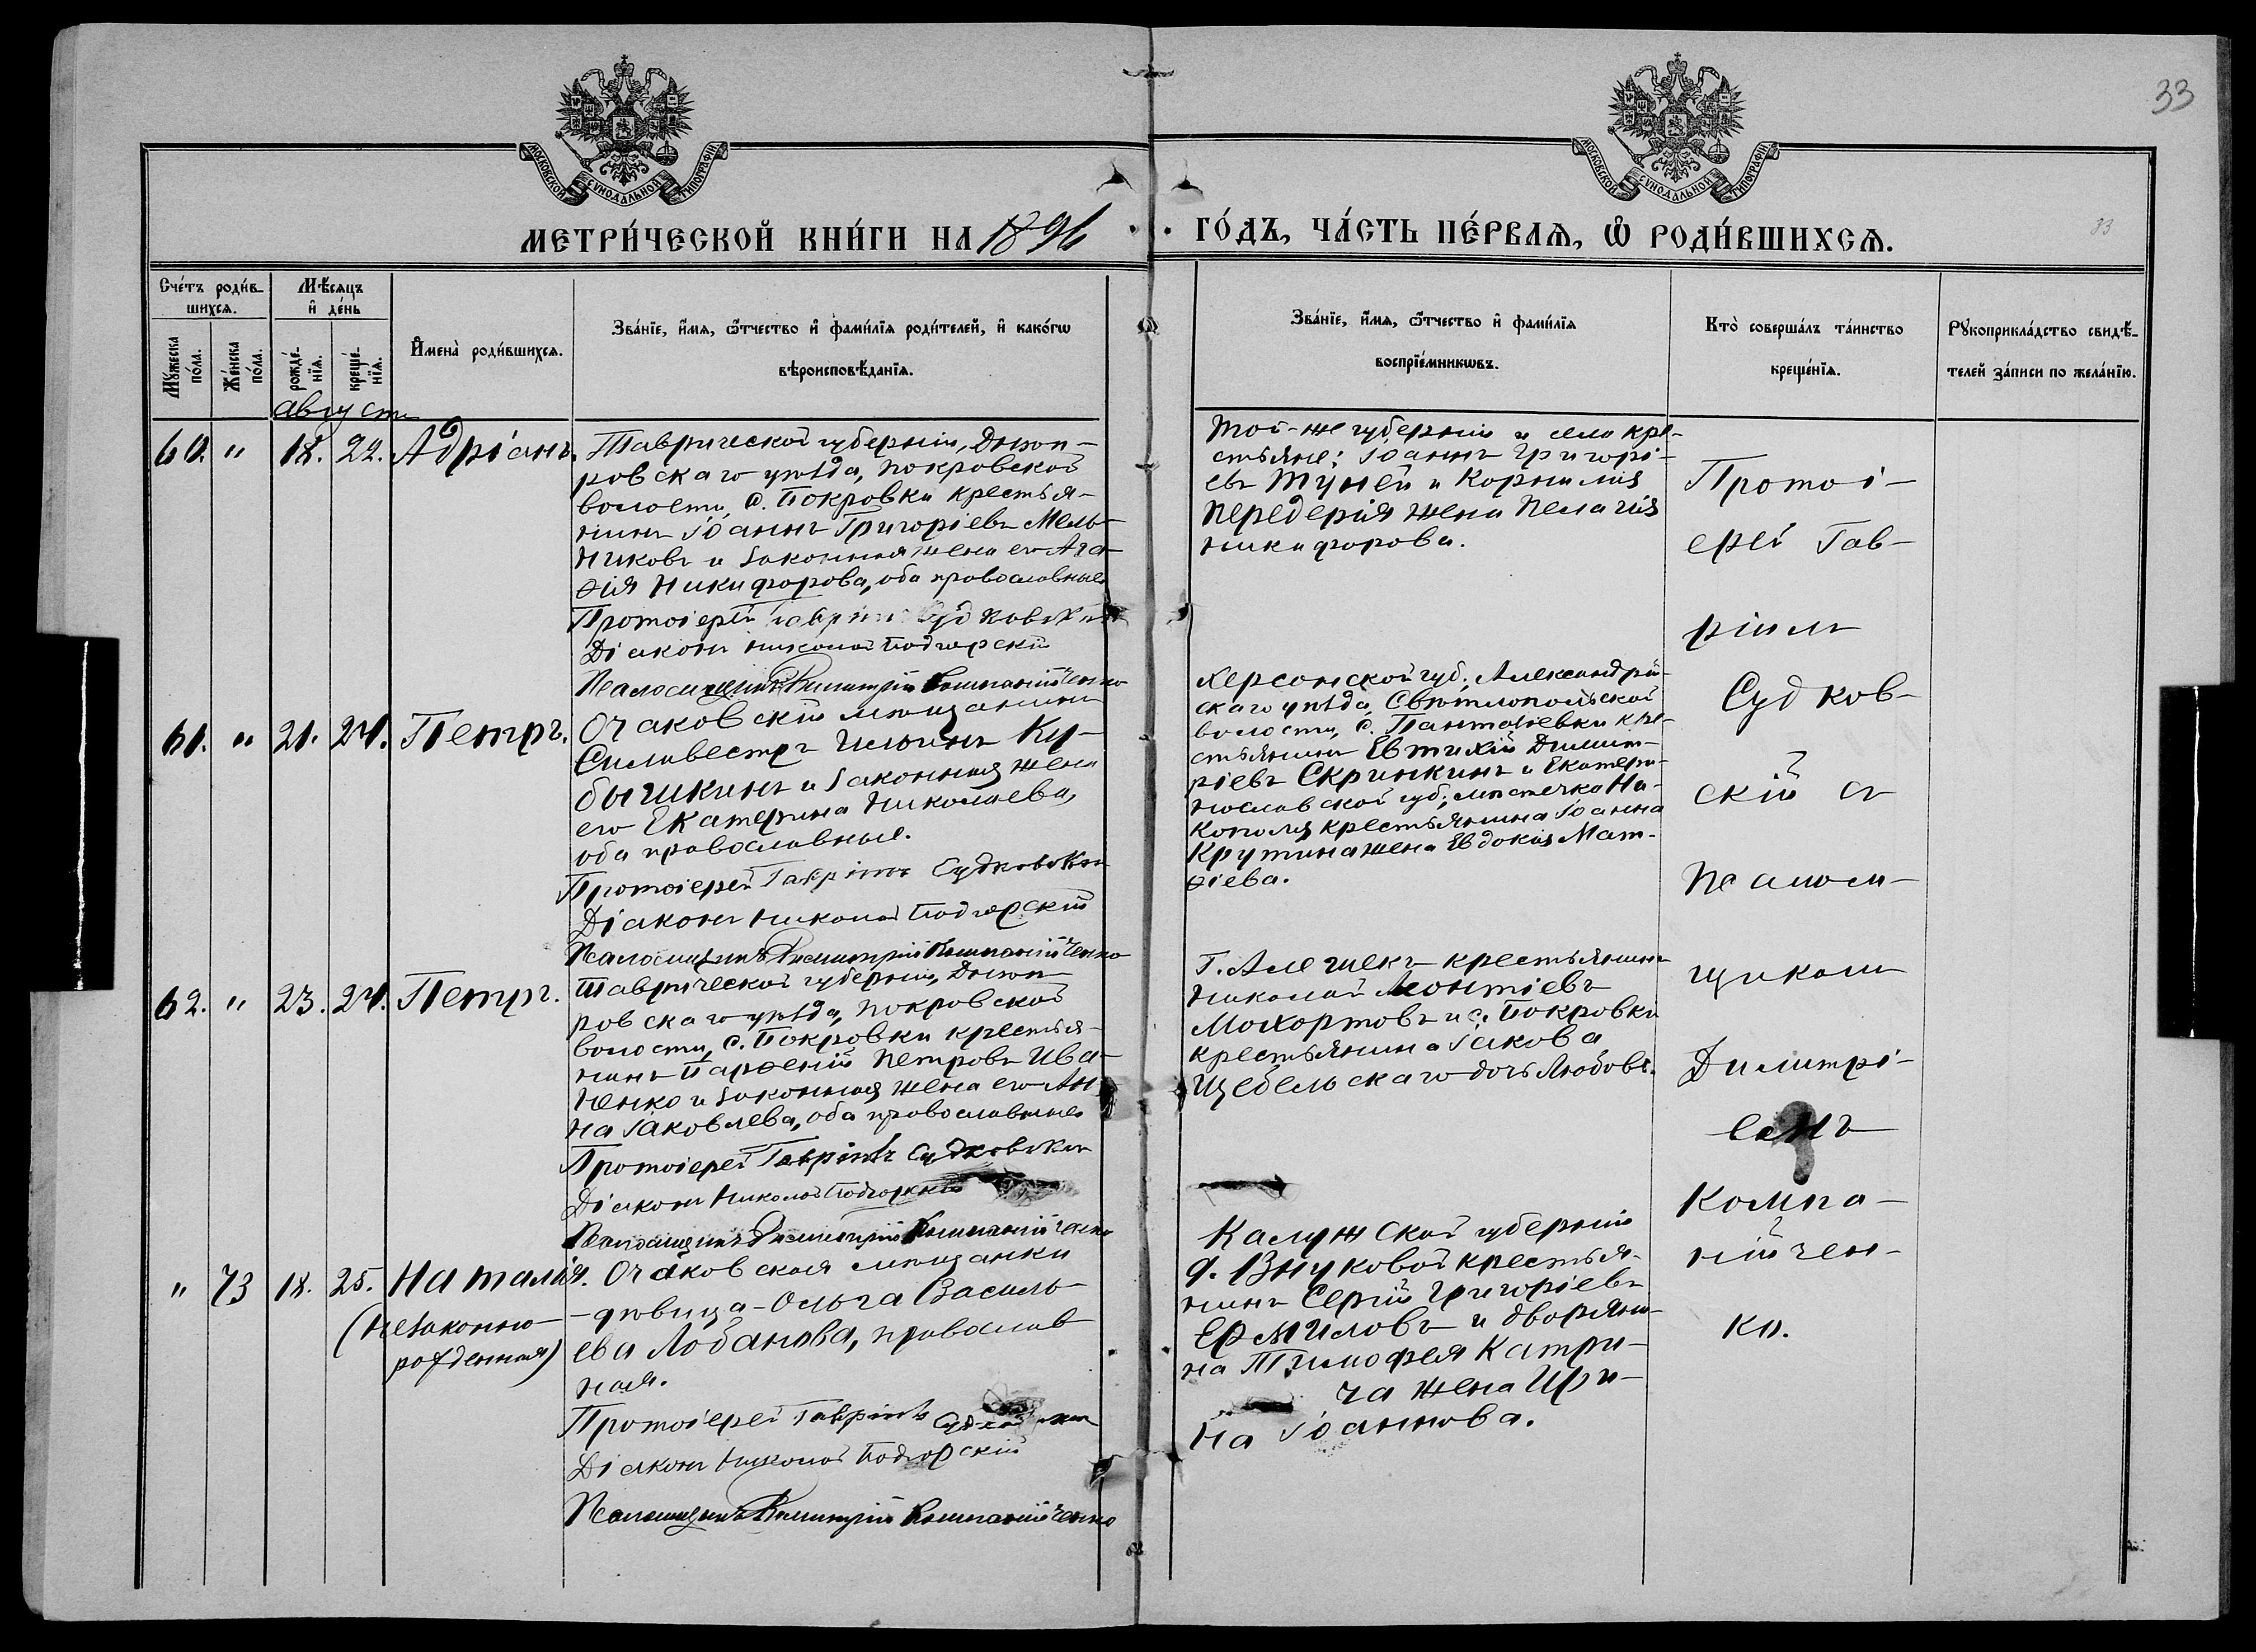 33
МОСКОВСКОЙ СѴНОДАЛЬНОЙ ТИПОГРАФІИ
МОСКОВСКОЙ СѴНОДАЛЬНОЙ ТИПОГРАФІИ
МЕТРИ́ЧЕСКОЙ КНИ́ГИ НА 1896
ГО́ДЪ, ЧА́СТЬ ПЕ́РВАѦ, Ѡ҆ РОДИ́ВШИХСѦ.
33
Сче́тъ роди́в-
шихсѧ.
Мꙋ́жеска
по́ла.
Же́нска
по́ла.
Мѣ́сѧцъ
и҆ де́нь
рожде́-
нїѧ.
креще́-
нїѧ.
И҆мена̀ роди́вшихсѧ.
Зва́нїе, и҆́мѧ, ѻ҆́тчество и҆ фами́лїѧ роди́телей, и҆ како́гѡ
вѣроисповѣ́данїѧ.
Зва́нїе, и҆́мѧ, ѻ҆́тчество и҆ фами́лїѧ
воспрїе́мникѡвъ.
Кто̀ соверша́лъ та́инство
креще́нїѧ.
Рꙋкоприкла́дство свидѣ́-
телей за́писи по жела́нїю.
Августъ
60. " 18. 22. Адріанъ.
Таврической губерніи, Днѣп-
ровскаго уѣзда, Покровской
волости, с. Покровки крестья-
нинъ Іоаннъ Григоріевъ Мель-
никовъ и законная жена его Ага-
ѳія Никифорова, оба православные
Протоіерей Гавріилъ Судковскій
Діаконъ Николай Подгорскій
Псаломщикъ Димитрій Компанійченко
Той-же губерніи и села кре-
стьяне: Іоаннъ Григорі-
евъ Тупей и Корнилія
Передерія жена Пелагія
Никифорова.
61. " 21. 24. Петръ.
Очаковскій мѣщанинъ
Силивестръ Ильинъ Ку-
бышкинъ и законная жена
его Екатерина Николаева,
оба православные.
Протоіерей Гавріилъ Судковскій
Діаконъ Николай Подгорскій
Псаломщикъ Димитрій Компанійченко
Херсонской губ. Александрій-
скаго уѣзда, Свѣтлопольской
волости, с. Пантаевки кре-
стьянинъ Евтихій Димит-
ріевъ Скринкинъ и Екатери-
нославской губ., мѣстечка Ни-
кополя крестьянина Іоанна
Крутина жена Евдокія Мат-
ѳіева.
62. " 23. 24. Петръ.
Таврической губерніи, Днѣп-
ровскаго уѣзда, Покровской
волости, с. Покровки крестья-
нинъ Парѳеній Петровъ Ива-
ненко и законная жена его Ан-
на Іаковлева, оба православные
Протоіерей Гавріилъ Судковскій
Діаконъ Николай Подгорскій
Псаломщикъ Димитрій Компанійченко
Г. Алешекъ крестьянинъ
Николай Леонтіевъ
Мохортовъ и с. Покровки
крестьянина Іакова
Щебельскаго дочь Любовь.
" 73 18. 25. Наталія.
(незаконно-
рожденная)
Очаковская мѣщанка
-дѣвица-Ольга Василь-
ева Лобанова, православ-
ная.
Протоіерей Гавріилъ
Діаконъ Николай Подгорскій
Псаломщикъ Димитрій Компанійченко
Калужской губерніи
д. Внуковой крестья-
нинъ Сергій Григоріевъ
Ермиловъ и дворяни-
на Тимофея Катри-
ча жена Ири-
на Іоаннова.
Протоі-
ерей Гав-
ріилъ
Судков-
скій съ
Псалом-
щикомъ
Димитрі-
емъ
Компа-
нійчен-
ко.